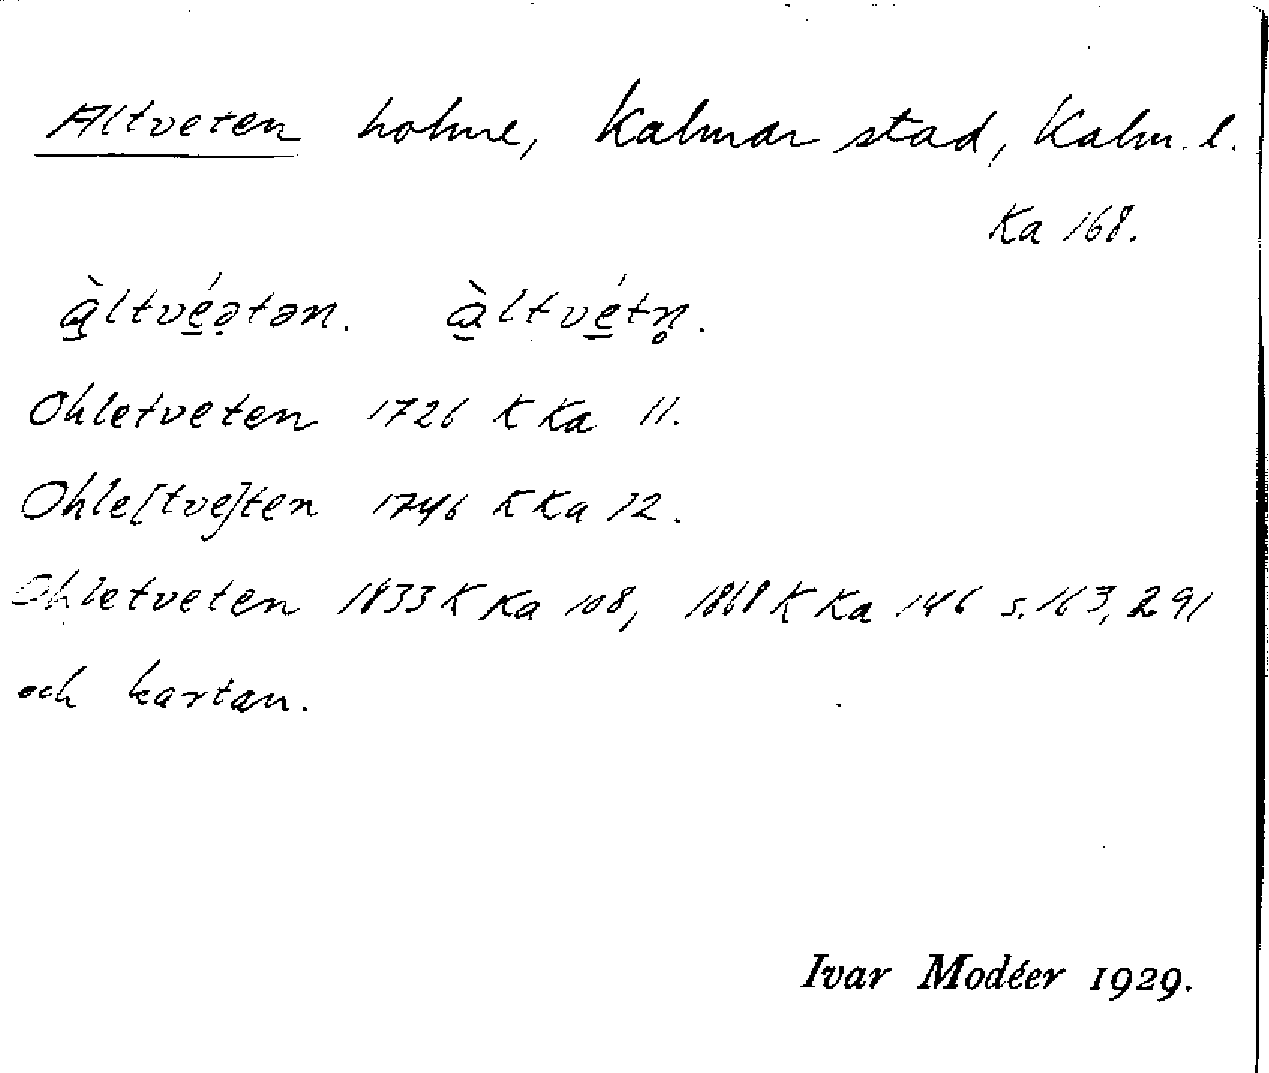 Altveten holme, Kalmar stad, Kalm. l.
Ka 168.
à̱ltvé̱ə̣tən. à̱ltvé̱tn̥.
Ohletveten 1726 K Ka 11.
Ohle[tve]ten 1746 K Ka 12.
Ohletveten 1833 K Ka 108, 1868 K Ka 146 s. 163, 291
och kartan.
Ivar Modéer 1929.